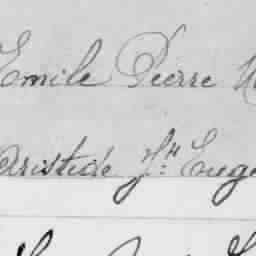 Emile Pierre
Aristide Jh Eug